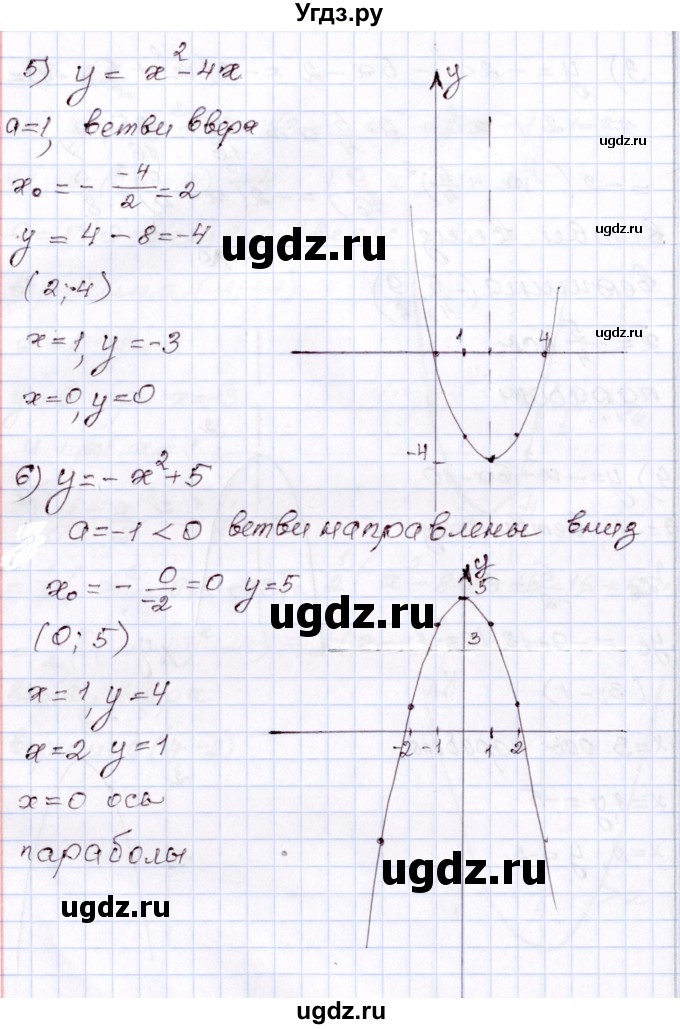 Угдз.ру
5) y = x² - 4x
a=1, ветви вверх
x₀ = - -4/2 = 2
y = 4 - 8 = -4
(2; -4)
x=1, y=-3
x=0, y=0
y
1
4
-4
ugdz.ru
ugdz.ru
ugdz.ru
6) y = - x² + 5
a=-1 < 0 ветви направлены вниз
x₀ = - 0/-2 = 0 y=5
(0; 5)
x=1, y=4
x=2 y=1
x=0 ось
параболы
y
5
3
-2 -1 1 2
ugdz.ru
ugdz.ru
ugdz.ru
ugdz.ru
ugdz.ru